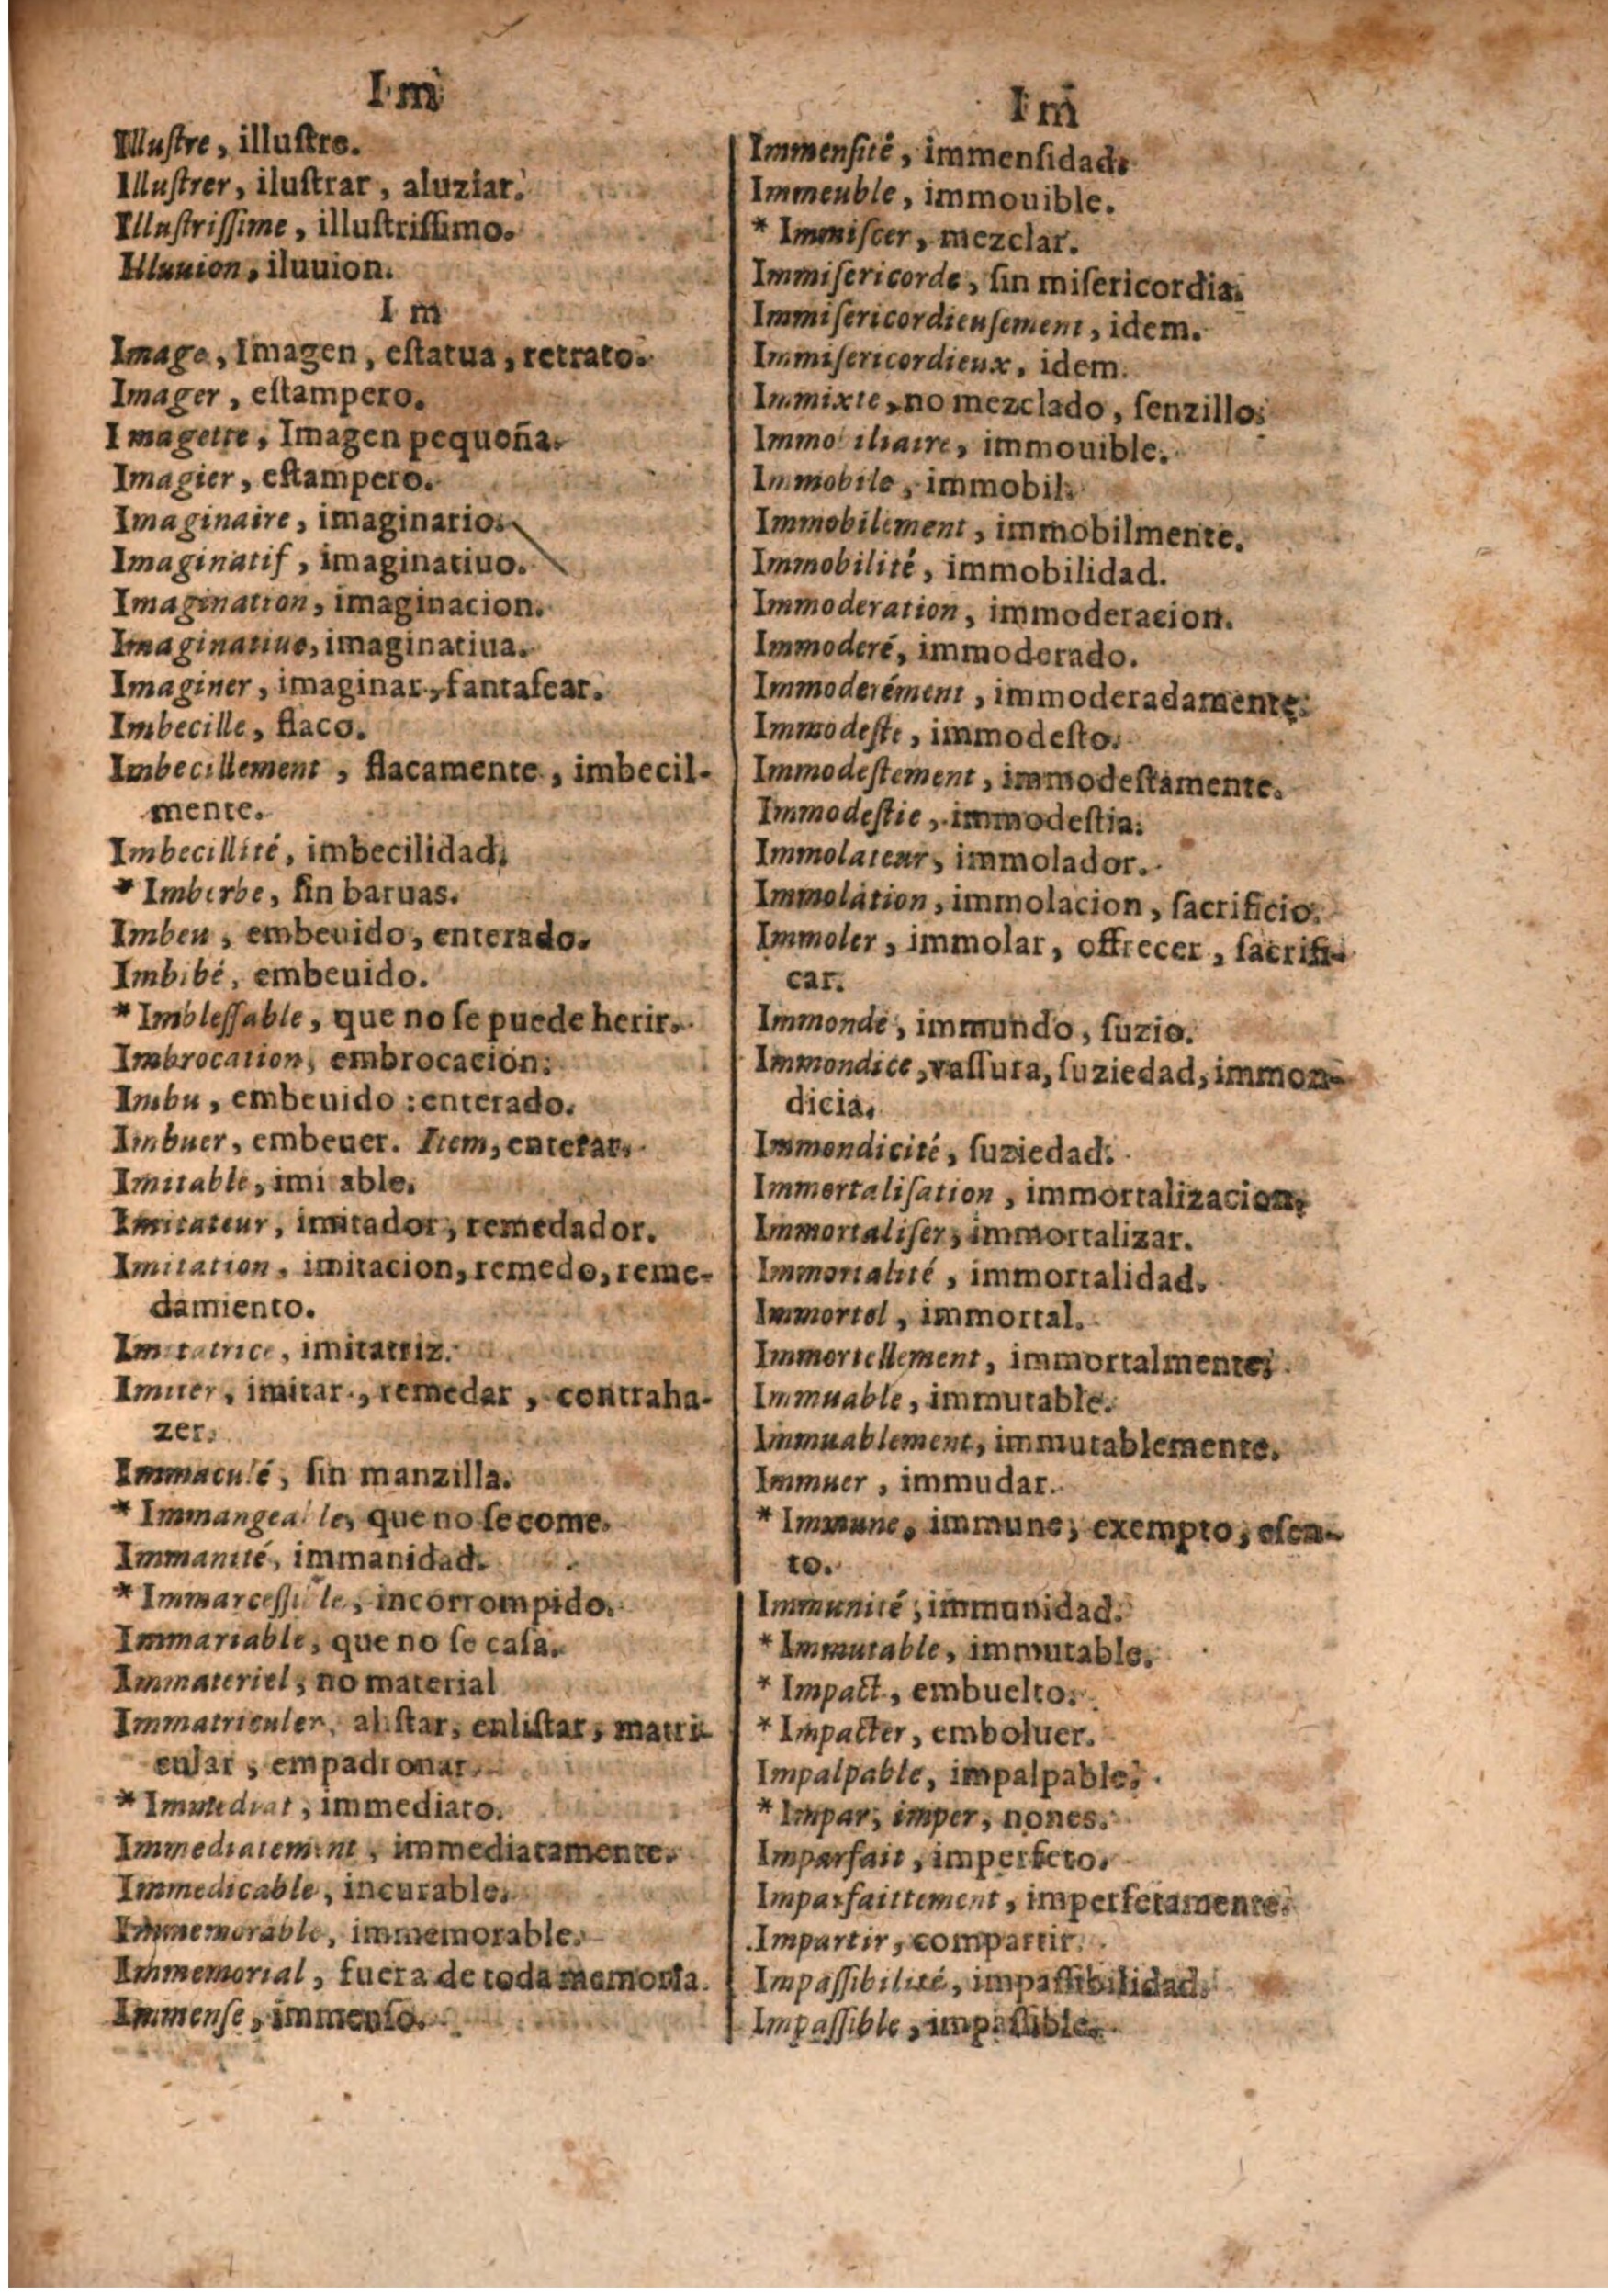 I m
Illuſtre, illuſtre.
Illuſtrer, iluſtrar, aluziar.
Illuſtriſſime, illuſtriſſimo.
Illuuion, iluuion.
I m
Image, Imagen, eſtatua, retrato.
Imager, eſtampero.
Imagette, Imagen pequeña.
Imagier, eſtampero.
Imaginaire, imaginario.
Imaginatif, imaginatiuo.
Imagination, imaginacion.
Imaginatiue, imaginatiua.
Imaginer, imaginar, fantaſear.
Imbecille, flaco.
Imbecillement, flacamente, imbecil-
mente.
Imbecillité, imbecilidad.
* Imberbe, ſin baruas.
Imbeu, embeuido, enterado.
Imbibé, embeuido.
* Imbleſſable, que no ſe puede herir.
Imbrocation, embrocacion.
Imbu, embeuido : enterado.
Imbuer, embeuer. Item, enterar.
Imitable, imi able.
Imitateur, imitador, remedador.
Imitation, imitacion, remedo, reme-
damiento.
Imitatrice, imitatriz.
Imiter, imitar, remedar, contraha-
zer.
Immaculé, ſin manzilla.
* Immangeable, que no ſe come.
Immanité, immanidad.
* Immarceſſible, incorrompido.
Immariable, que no ſe caſa.
Immateriel, no material
Immatriculer, aliſtar, enliſtar, matri-
cular, empadronar.
* Immediat, immediato.
Immediatement, immediatamente.
Immedicable, incurable.
Immemorable, immemorable.
Immemorial, fuera de toda memoria.
Immenſe, immenſo.
I m
Immenſité, immenſidad.
Immeuble, immouible.
* Immiſcer, mezclar.
Immiſericorde, ſin miſericordia.
Immiſericordieuſement, idem.
Immiſericordieux, idem.
Immixte, no mezclado, ſenzillo.
Immobiliaire, immouible.
Immobile, immobil.
Immobilement, immobilmente.
Immobilité, immobilidad.
Immoderation, immoderacion.
Immoderé, immoderado.
Immoderément, immoderadamente.
Immodeſte, immodeſto.
Immodeſtement, immodeſtamente.
Immodeſtie, immodeſtia.
Immolateur, immolador.
Immolation, immolacion, ſacrificio.
Immoler, immolar, offrecer, ſacrifi-
car.
Immonde, immundo, ſuzio.
Immondice, vaſſura, ſuziedad, immon-
dicia.
Immondicité, ſuziedad.
Immortaliſation, immortalizacion.
Immortaliſer, immortalizar.
Immortalité, immortalidad.
Immortel, immortal.
Immortellement, immortalmente.
Immuable, immutable.
Immuablement, immutablemente.
Immuer, immudar.
* Immune, immune, exempto, eſen-
to.
Immunité, immunidad.
* Immutable, immutable.
* Impact, embuelto.
* Impacter, emboluer.
Impalpable, impalpable.
* Impar, imper, nones.
Imparfait, imperfeto.
Imparfaittement, imperfetamente.
Impartir, compartir.
Impaſſibilité, impaſſibilidad.
Impaſſible, impaſſible.